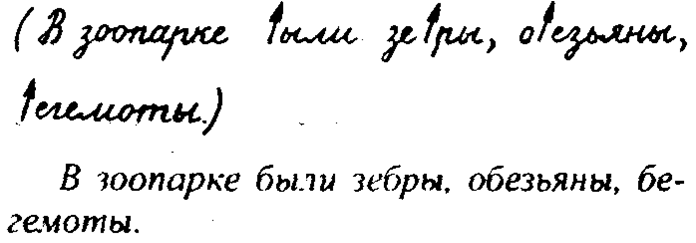 (В зоопарке ↑ыли зе↑ры, о↑езьяны,
↑егемоты.)
В зоопарке были зебры, обезьяны, бе-
гемоты.